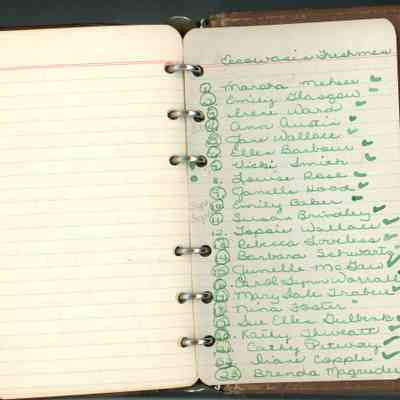 Eccowasin Freshmen
1. Marsha Mehsee
2. Emily Glasgow
3. Irene Ward
4. Ann Austin
5. Jane Wallace
6. Ellen Barbour
7. Vicki Smith
8. Louise Rose
9. Janelle Hood
10. Emily Baker
11. Susan Brindley
12. Topsie Wallace
13. Rebecca Loveless
14. Barbara Schwartz
15. Junelle McGaw
16. Carol Lynn Worrall
17. Mary Dale Trabue
18. Nina Foster
19. Sue Ellen Dulbenk
20. Kathy Thweatt
21. Cathy Pitway
22. Diane Copple
23. Brenda Magruder